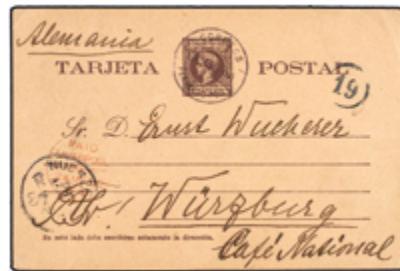 Alemania
TARJETA POSTAL
19
Sr. D. Ernst Wucherer
Würzburg
Café National
En este lado debe escribirse solamente la dirección.